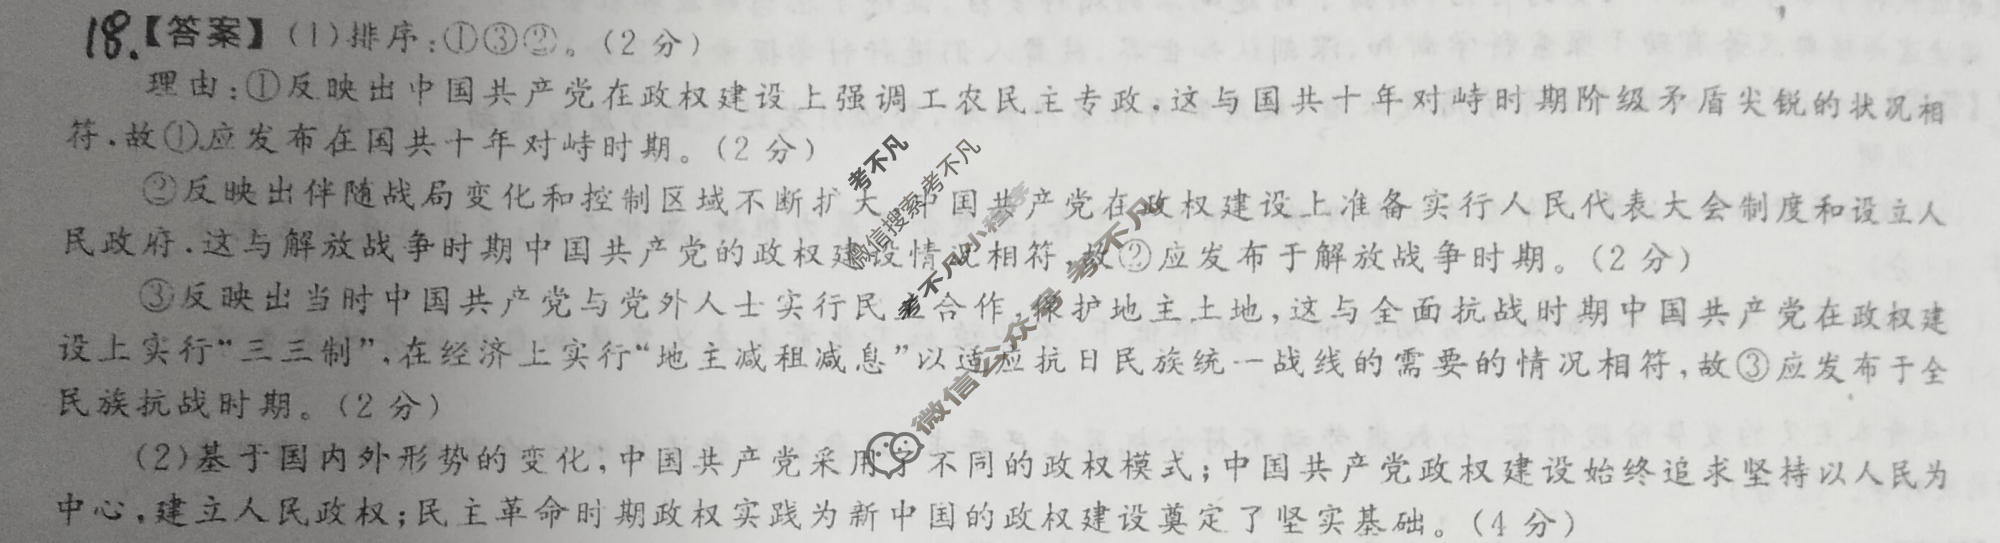 18.【答案】(1)排序:①③②。(2分)
理由:①反映出中国共产党在政权建设上强调工农民主专政,这与国共十年对峙时期阶级矛盾尖锐的状况相
符,故①应发布在国共十年对峙时期。(2分)
②反映出伴随战局变化和控制区域不断扩大,中国共产党在政权建设上准备实行人民代表大会制度和设立人
民政府,这与解放战争时期中国共产党的政权建设情况相符,故②应发布于解放战争时期。(2分)
③反映出当时中国共产党与党外人士实行民主合作,保护地主土地,这与全面抗战时期中国共产党在政权建
设上实行“三三制”,在经济上实行“地主减租减息”以适应抗日民族统一战线的需要的情况相符,故③应发布于全
民族抗战时期。(2分)
(2)基于国内外形势的变化,中国共产党采用了不同的政权模式;中国共产党政权建设始终追求坚持以人民为
中心,建立人民政权;民主革命时期政权实践为新中国的政权建设奠定了坚实基础。(4分)
考不凡
微信搜索考不凡
考不凡小程序
微信公众号 考不凡